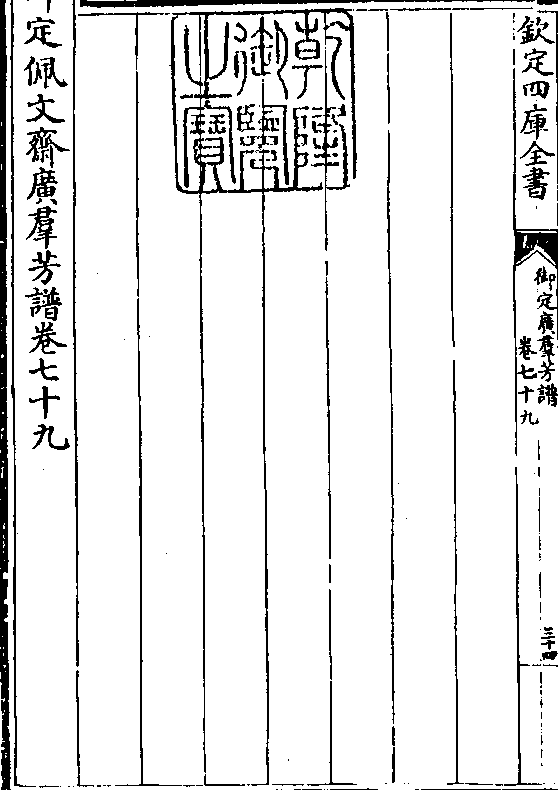 欽定四庫全書
御定廣羣芳譜
卷七十九
三十四
乾隆
御覽
之寶
定佩文齋廣羣芳譜卷七十九